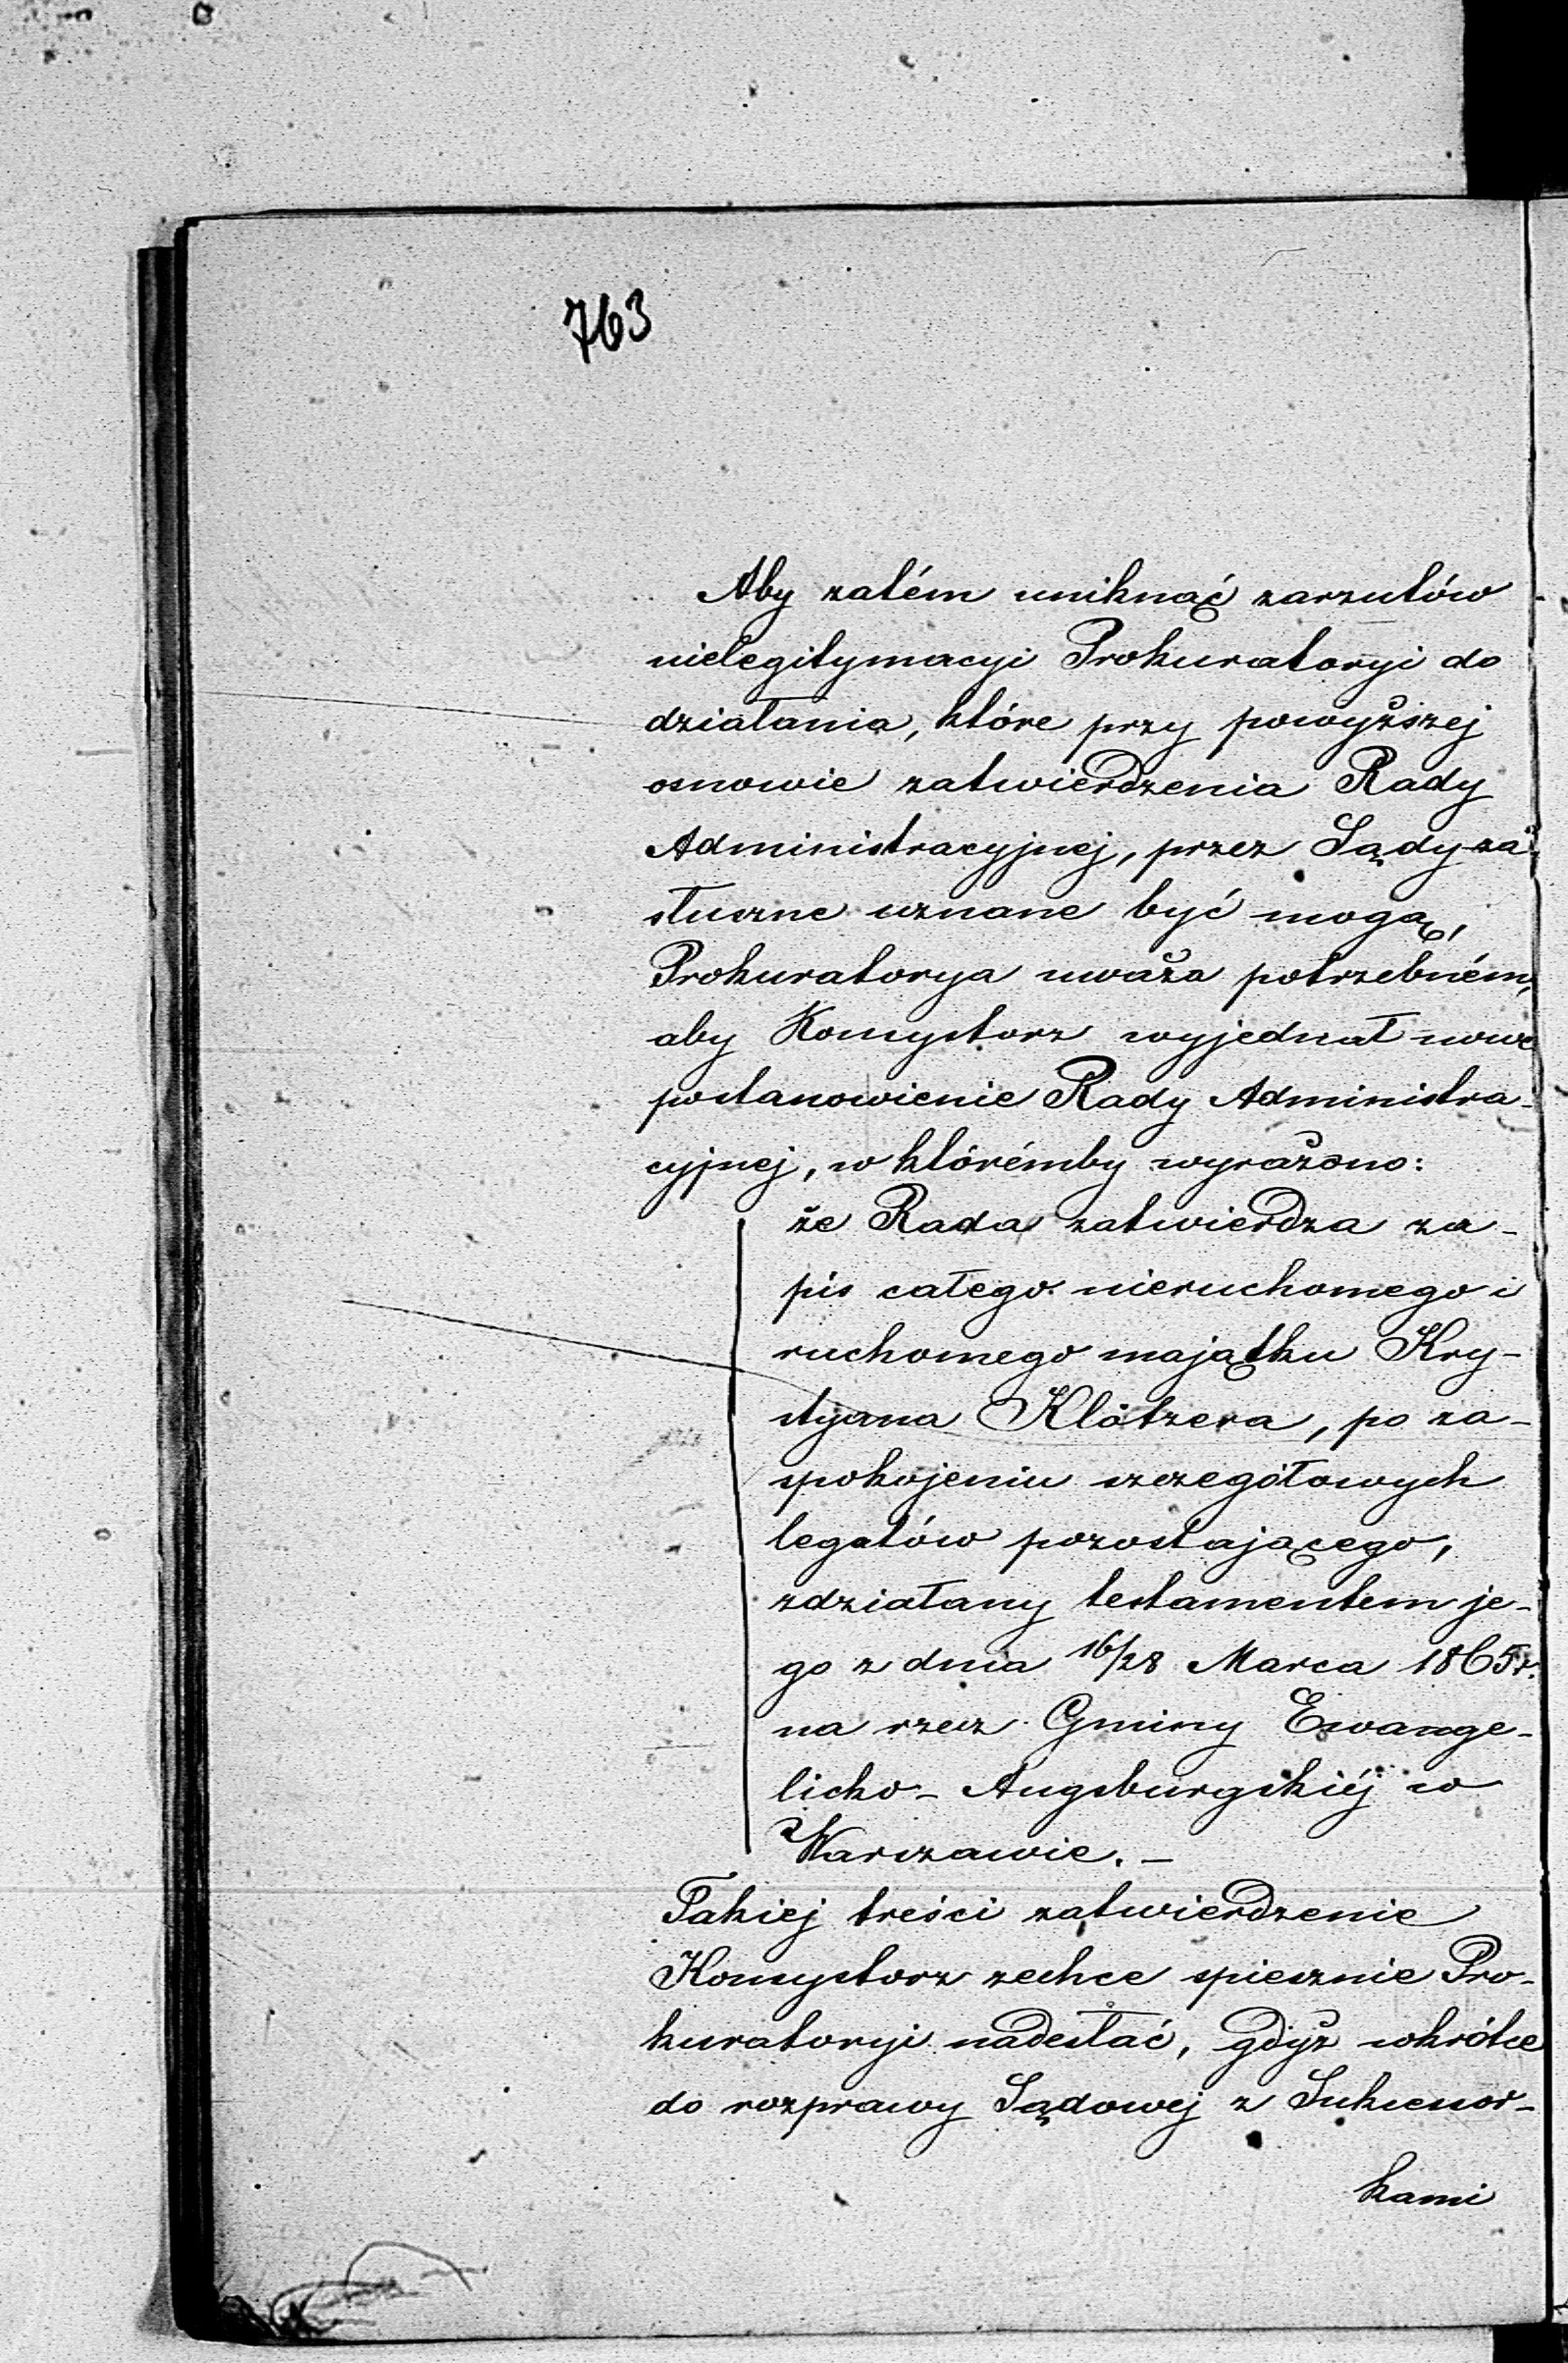 763
Aby zatém uniknąć zarzutów
nielegitymacyi Prokuratoryi do
działania, które przy powyższej
osnowie zatwierdzenia Rady
Administracyjnej, przez Sądy za
słuszne uznane być mogą,
Prokuratorya uważa potrzebném,
aby Konsystorz wyjednał nowe
postanowienie Rady Administra-
cyjnej, w którémby wyrażono:
że Rada zatwierdza za-
pis całego nieruchomego i
ruchomego majątku Kry-
styana Klötzera, po za-
spokojeniu szczegółowych
legatów pozostającego,
zdziałany testamentem je-
go z dnia 16/28 Marca 1865 r.
na rzecz Gminy Ewange-
licko-Augsburgskiéj w
Warszawie. –
Takiej treści zatwierdzenie
Konsystorz zechce spiesznie Pro-
kuratoryi nadesłać, gdyż wkrótce
do rozprawy Sądowej z Sukcesor-
kami